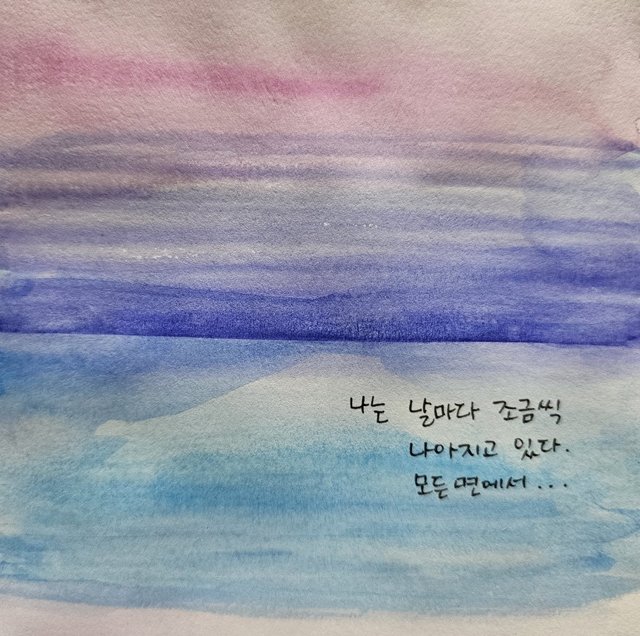 나는 날마다 조금씩
나아지고 있다.
모든 면에서...